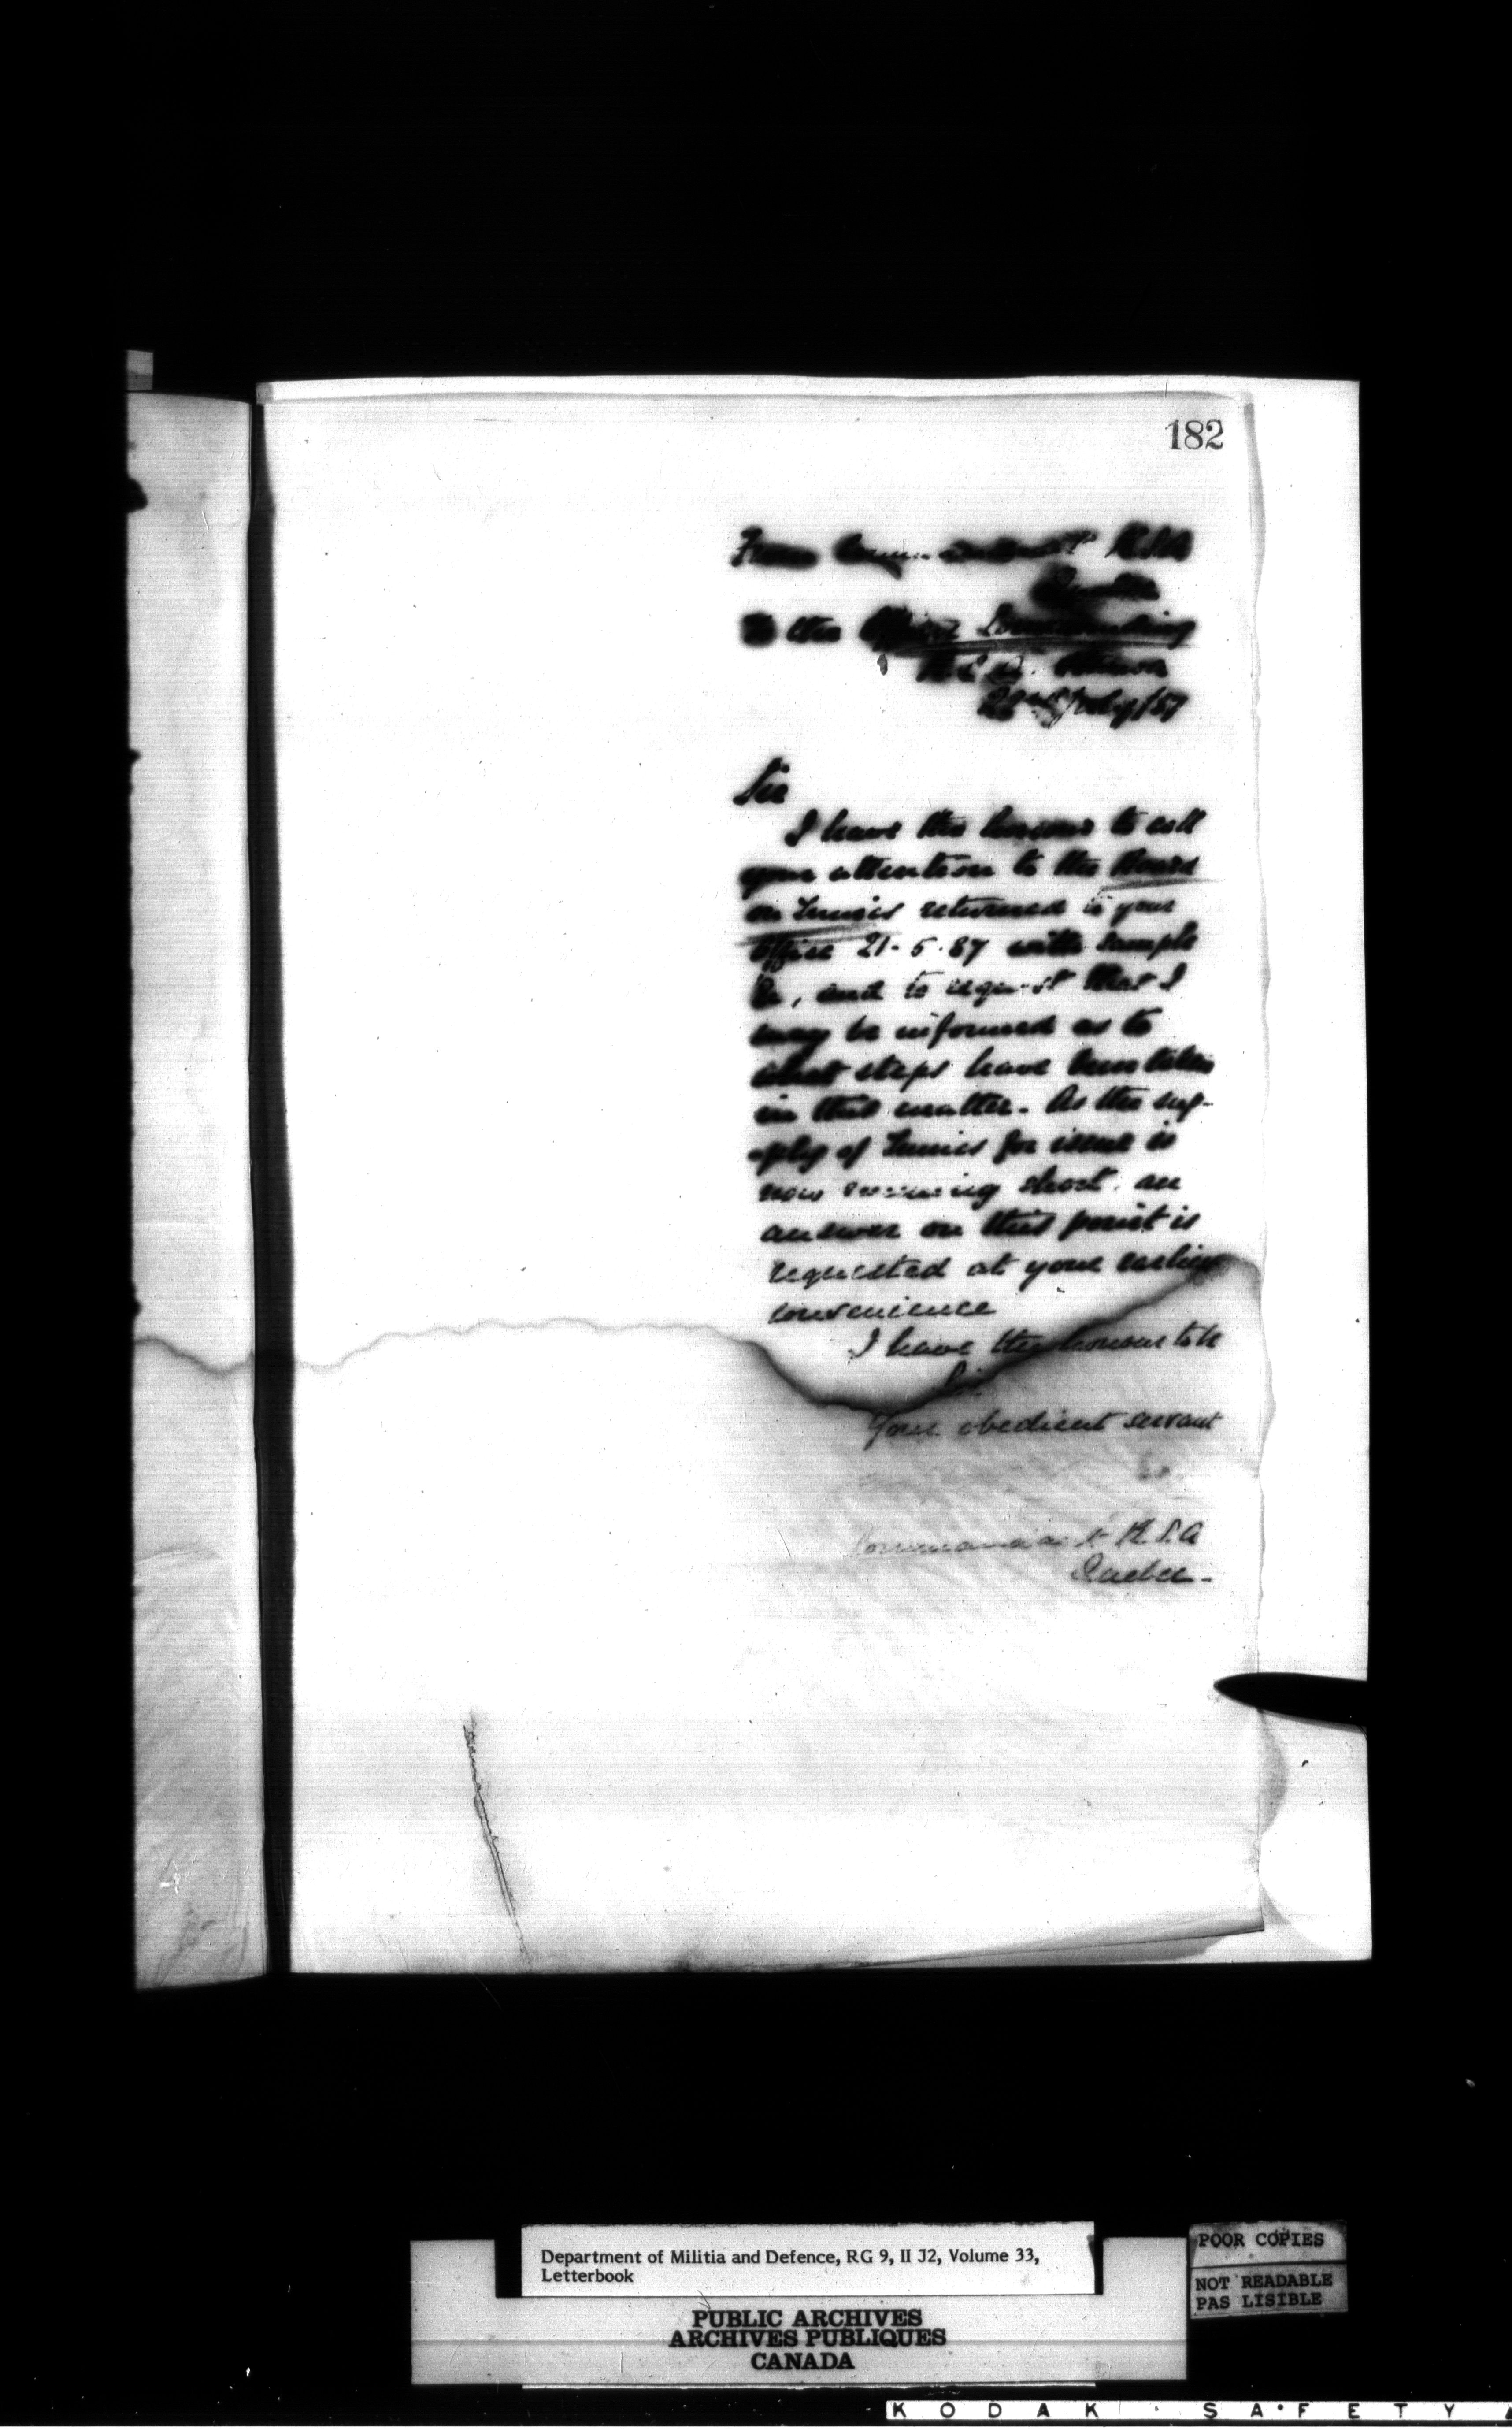 182
From Commandant R.S.A
Quebec
To the Officer Commanding
22nd July/87
Sir
I have the honour to call
your attention to the Board
on Tunics returned to your
Office 21-5-87 with sample
&c, and to request that I
may be informed as to
what steps have been taken
in that matter. As the sup-
-ply of Tunics for issue is
now running short, an
answer on this point is
requested at your earliest
convenience
I have the honour to be
Sir
Your obedient servant
Commandant R.S.A
Quebec-
Department of Militia and Defence, RG 9, II J2, Volume 33,
Letterbook
PUBLIC ARCHIVES
ARCHIVES PUBLIQUES
CANADA
POOR COPIES
NOT READABLE
PAS LISIBLE
KODAK SAFETY